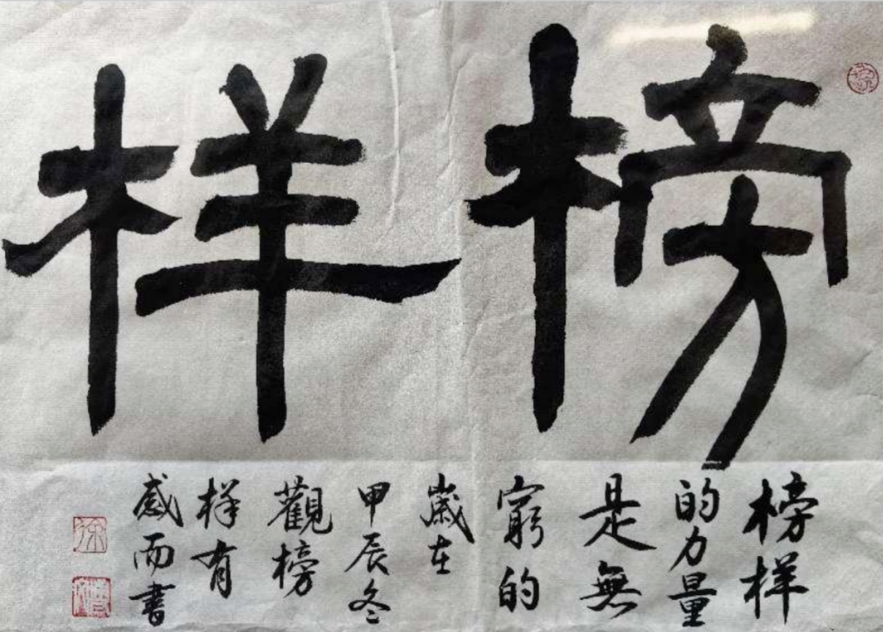 榜样
榜样
的力量
是無
窮的
歲在
甲辰冬
觀榜
样有
感而書